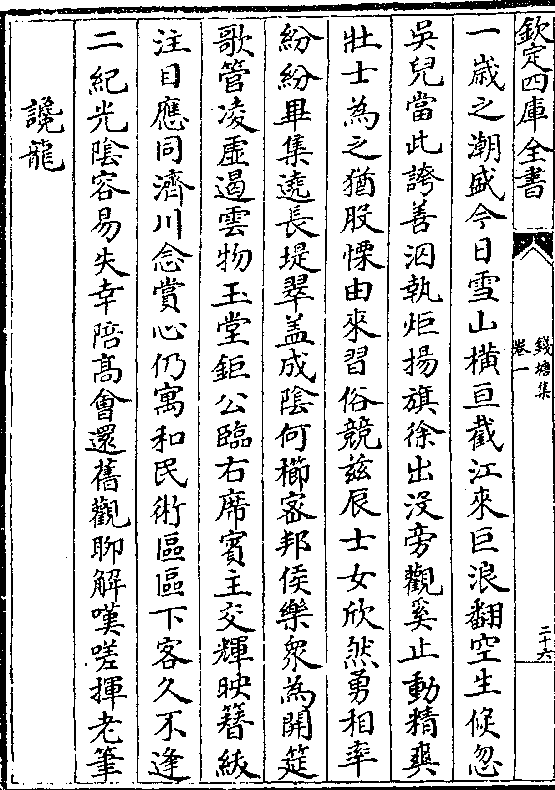 欽定四庫全書
錢塘集
卷一
二十六
一歳之潮盛今日雪山橫亘截江來巨浪翻空生倐忽
吳兒當此誇善泅執炬揚旗徐出没旁觀奚止動精爽
壯士為之猶股慄由來習俗競兹辰士女欣然勇相率
紛紛畢集遶長堤翠盖成陰何櫛宻邦侯樂衆為開筵
歌管凌虚遏雲物玉堂鉅公臨右席賓主交輝映簪紱
注目應同濟川念賞心仍寓和民術區區下客久不逢
二紀光陰容易失幸陪髙會還舊觀聊解嘆嗟揮老筆
讒龍